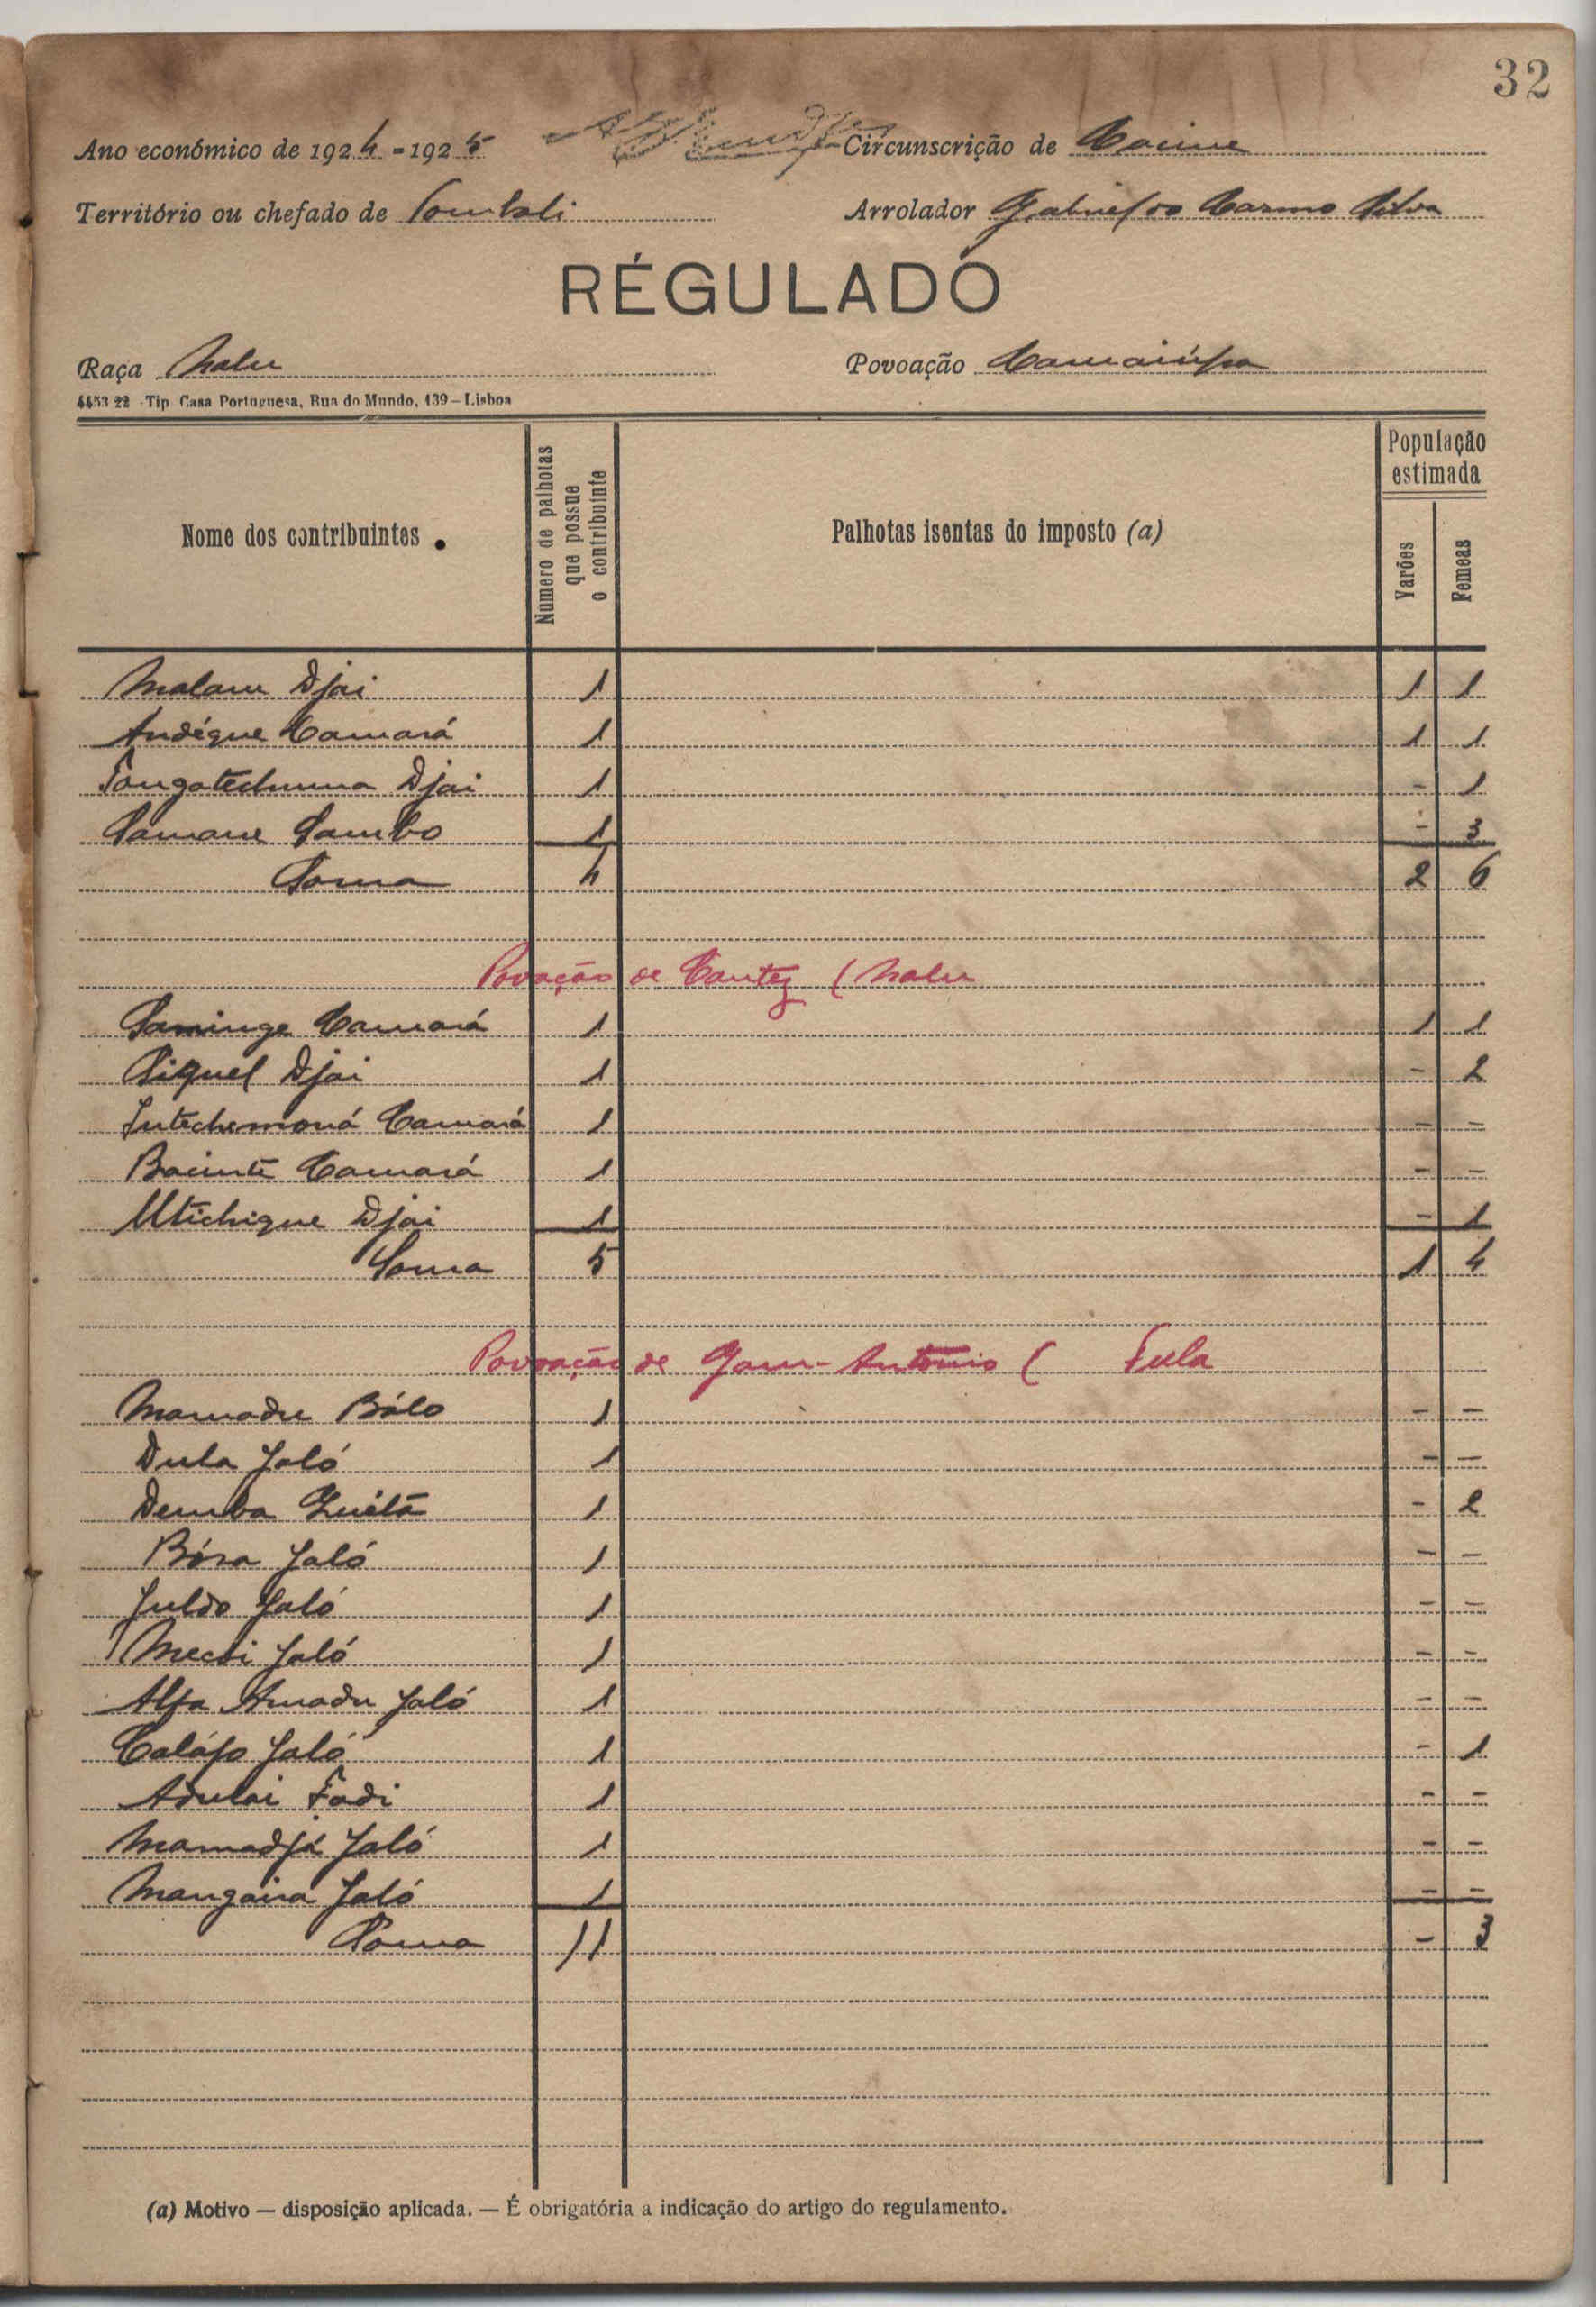 32
Ano económico de 1924-1925 Circunscrição de Cacine
Território ou chefado de Tombali Arrolador Gabriel do Carmo Silva
RÉGULADO
Raça Nalu Povoação
4453 22 - Tip Casa Portuguesa, Rua do Mundo, 139 - Lisboa
Nome dos contribuintes Numero de palhotas que possue o contribuinte Palhotas isentas do imposto (a) População estimada
Varões Femeas
Malam Djai 1 1 1
Andéque Camará 1 1 1
Tongatechuma Djai 1 - 1
Samane Sambo 1 - 3
Soma 4 2 6
Povoação de Cantez ( Nalu
Saminge Camará 1 1 1
Siquel Djai 1 - 2
Intechemoná Camará 1 - -
Bacinte Camará 1 - -
Utichique Djai 1 - 1
Soma 5 1 4
Povoação de Gam-António ( Fula
Mamadu Bálo 1 - -
Dula Jaló 1 - -
Demba 1 - 2
Bóra Jaló 1 - -
Juldo Jaló 1 - -
Jaló 1 - -
Alfa Amadu Jaló 1 - -
Jaló 1 - 1
Adulai Fadi 1 - -
Mamadjá Jaló 1 - -
Mangaira Jaló 1 - -
Soma 11 - 3
(a) Motivo — disposição aplicada. — É obrigatória a indicação do artigo do regulamento.